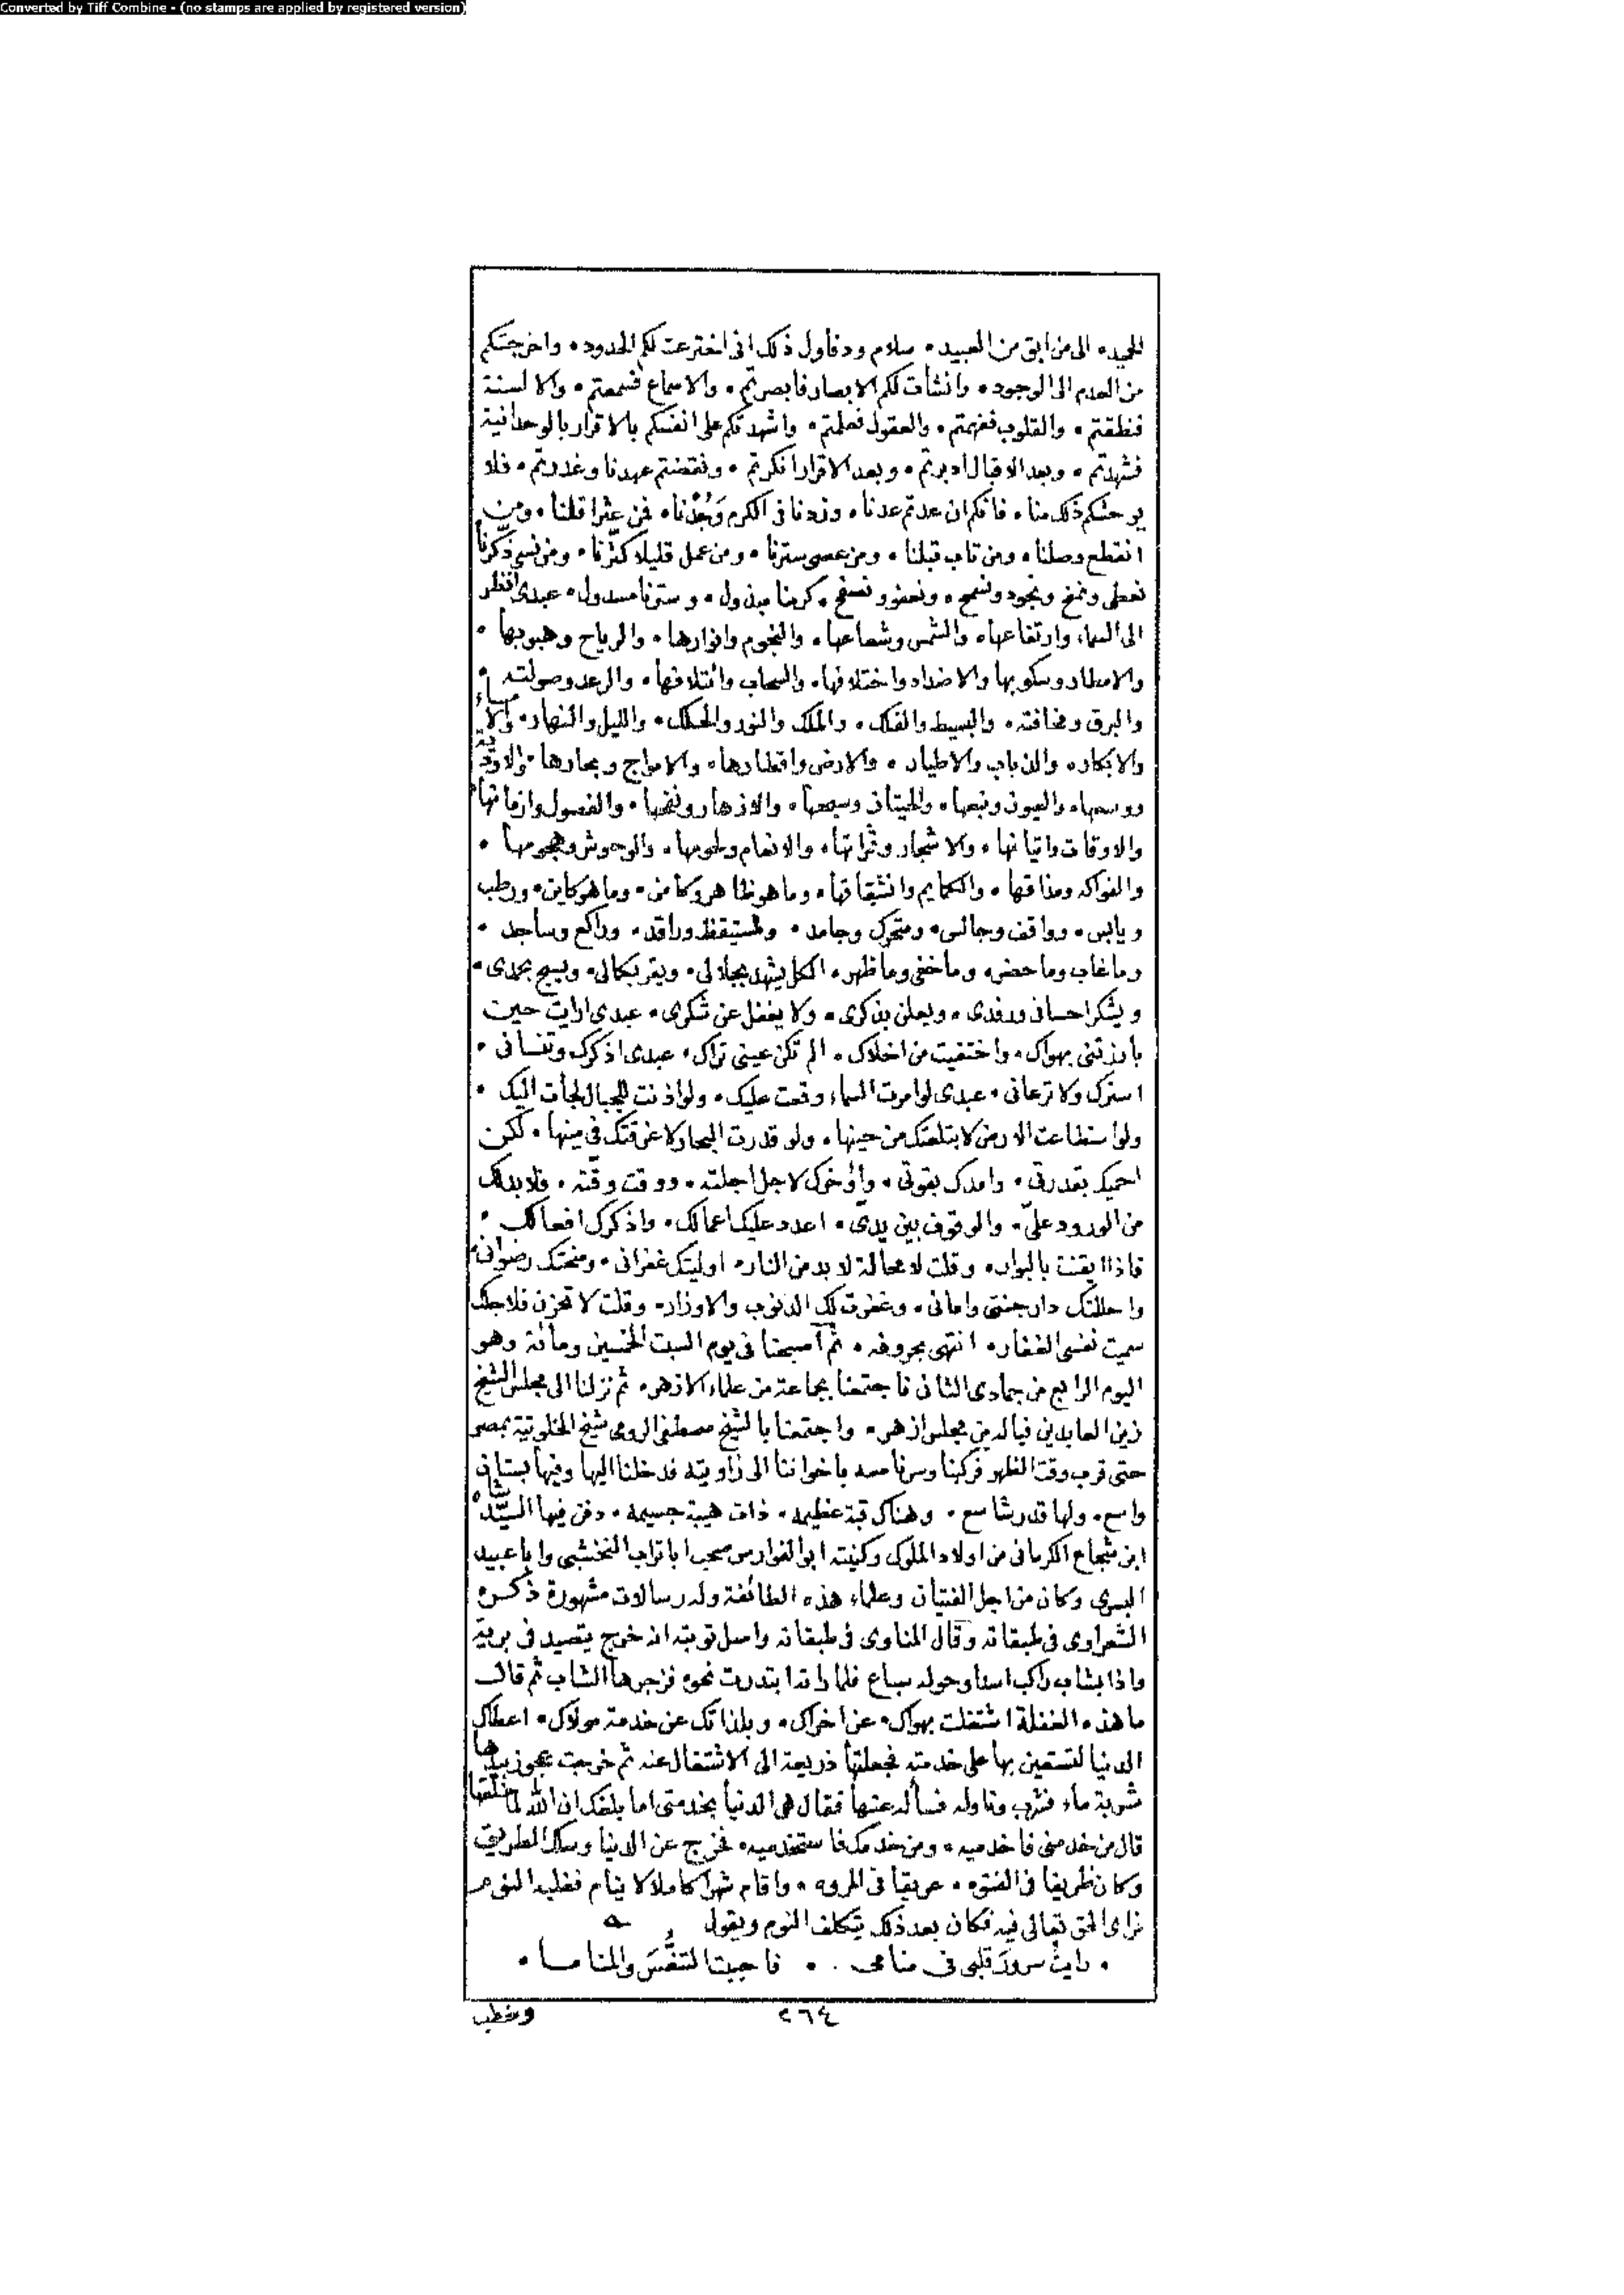 Converted by Tiff Combine - (no stamps are applied by registered version)
المجيد • الى من ابق من العبيد • سلام ودفاول ذلك انى اخترعت لكم الحدود • واخرجتكم
من العدم الى الوجود • وانشات لكم الابصار فابصرتم • والاسماع فسمعتم • والالسنة
فنطقتم • والقلوب ففهمتم • والعقول فعلمتم • واشهدتكم على انفسكم بالاقرار بالوحدانية
فشهدتم • وبعد الاقبال ادبرتم • وبعد الاقرار انكرتم • ونقضتم عهدنا وغدرتم • فلا
يوحشكم ذلك منا • فانكم ان عدتم عدنا • وزدنا فى الكرم وَجُدْنا • فمن عثر اقلنا • ومن
انقطع وصلنا • ومن تاب قبلنا • ومن عصى سترنا • ومن عمل قليلا كثّرنا • ومن نسى ذكّرنا
نعطى ونمنح ونجود ونسمح • ونعفو ونصفح • كرمنا مبذول • وسترنا مسدول • عبدى انظر
الى السماء وارتفاعها • والشمس وشعاعها • والنجوم وانوارها • والرياح وهبوبها •
والامطار وسكوبها والاضداد واختلافها • والسحاب وائتلافها • والرعد وصولته •
والبرق ومخافته • والبسيط والفلك • والملك والنور والحلك • والليل والنهار • والامساء
والابكار • والذباب والاطيار • والارض واقطارها • والامواج وبحارها • والاودية
ووسعها • والعيون ونبعها • والحيتان وسبحها • والازهار ونفحها • والفصول وازمانها •
والاوقات واتيانها • والاشجار وثمراتها • والانعام ولحومها • والوحوش وهجومها •
والفواكه ومذاقها • والكمايم وانشقاقها • وما هو ظاهر وكامن • وما هو كاين • ورطب
ويابس • وواقف وجالس • ومتحرك وجامد • ومستيقظ وراقد • وراكع وساجد •
وما غاب وما حضر • وما خفى وما ظهر • الكل يشهد بجلالى • ويقر بكمالى • ويسبح بحمدى •
ويشكر احسانى ورفدى • ويعلن بذكرى • ولا يغفل عن شكرى • عبدى ارايت حين
بارزتنى بهواك • واختفيت من اخلاك • الم تكن عينى تراك • عبدى اذكرك وتنسانى •
استرك ولا ترعانى • عبدى لو امرت السماء وقعت عليك • ولو اذنت للجبال لجأت اليك •
ولو استطاعت الارض لابتلعتك من حينها • ولو قدرت البحار لاغرقتك فى مينها • لكن
احميك بقدرتى • وامدك بقوتى • وأؤخرك لاجل اجلته • ووقت وقّته • فلا بد لك
من الورود علىّ • والوقوف بين يدىّ • اعدد عليك اعمالك • واذكرك افعالك •
فاذا ايقنت بالبوار • وقلت لا محالة لا بد من النار • اوليتك غفرانى • ومنحتك رضوانى •
واحللتك دار جنتى وامانى • وغفرت لك الذنوب والاوزار • وقلت لا تحزن فلاجلك
سميت نفسى الغفار • انتهى بحروفه • ثم اصبحنا فى يوم السبت الخمسين ومائة وهو
اليوم الرابع من جمادى الثانى فاجتمعنا بجماعة من علماء الازهر • ثم نزلنا الى مجلس الشيخ
زين العابدين فياله من مجلس ازهر • واجتمعنا بالشيخ مصطفى الرومى شيخ الخلوتية بمصر
حتى قرب وقت الظهر فركبنا وسرنا معه باخواننا الى زاويته فدخلنا اليها وفيها بستان
واسع • ولها قدر شاسع • وهناك قبة عظيمه • ذات هيبة جسيمه • دفن فيها السيّد شاه
ابن شجاع الكرمانى من اولاد الملوك وكنيته ابو الفوارس صحب ابا تراب النخشبى وابا عبيد
البسرى وكان من اجل الفتيان وعلماء هذه الطائفة وله رسالات مشهورة ذكره
الشعراوى فى طبقاته وقال المناوى فى طبقاته واصل توبته انه خرج يتصيد فى برية
واذا بشاب راكب اسدا وحوله سباع فلما راته ابتدرت نحوه فزجرها الشاب ثم قال
ما هذه الغفلة اشتغلت بهواك • عن اخراك • وبلذاتك عن خدمة مولاك • اعطاك
الدنيا لتستعين بها على خدمته فجعلتها ذريعة الى الاشتغال عنه ثم خرجت عجوز بيدها
شربة ماء فشرب وناوله فسأله عنها فقال هى الدنيا بخدمتى اما بلغك ان الله لما خلقها
قال من خدمنى فاخدميه • ومن خدمك فاستخدميه • فخرج عن الدنيا وسلك الطريق
وكان ظريفا فى الفتوه • عريقا فى المروه • واقام شهرا كاملا لا ينام فغلبه النوم
فراى الحق تعالى فيه فكان بعد ذلك يتكلف النوم ويقول
• رايتُ سرورَ قلبى فى منامى • • فاحببتُ التنفُّسَ والمناما •
٢٦٤